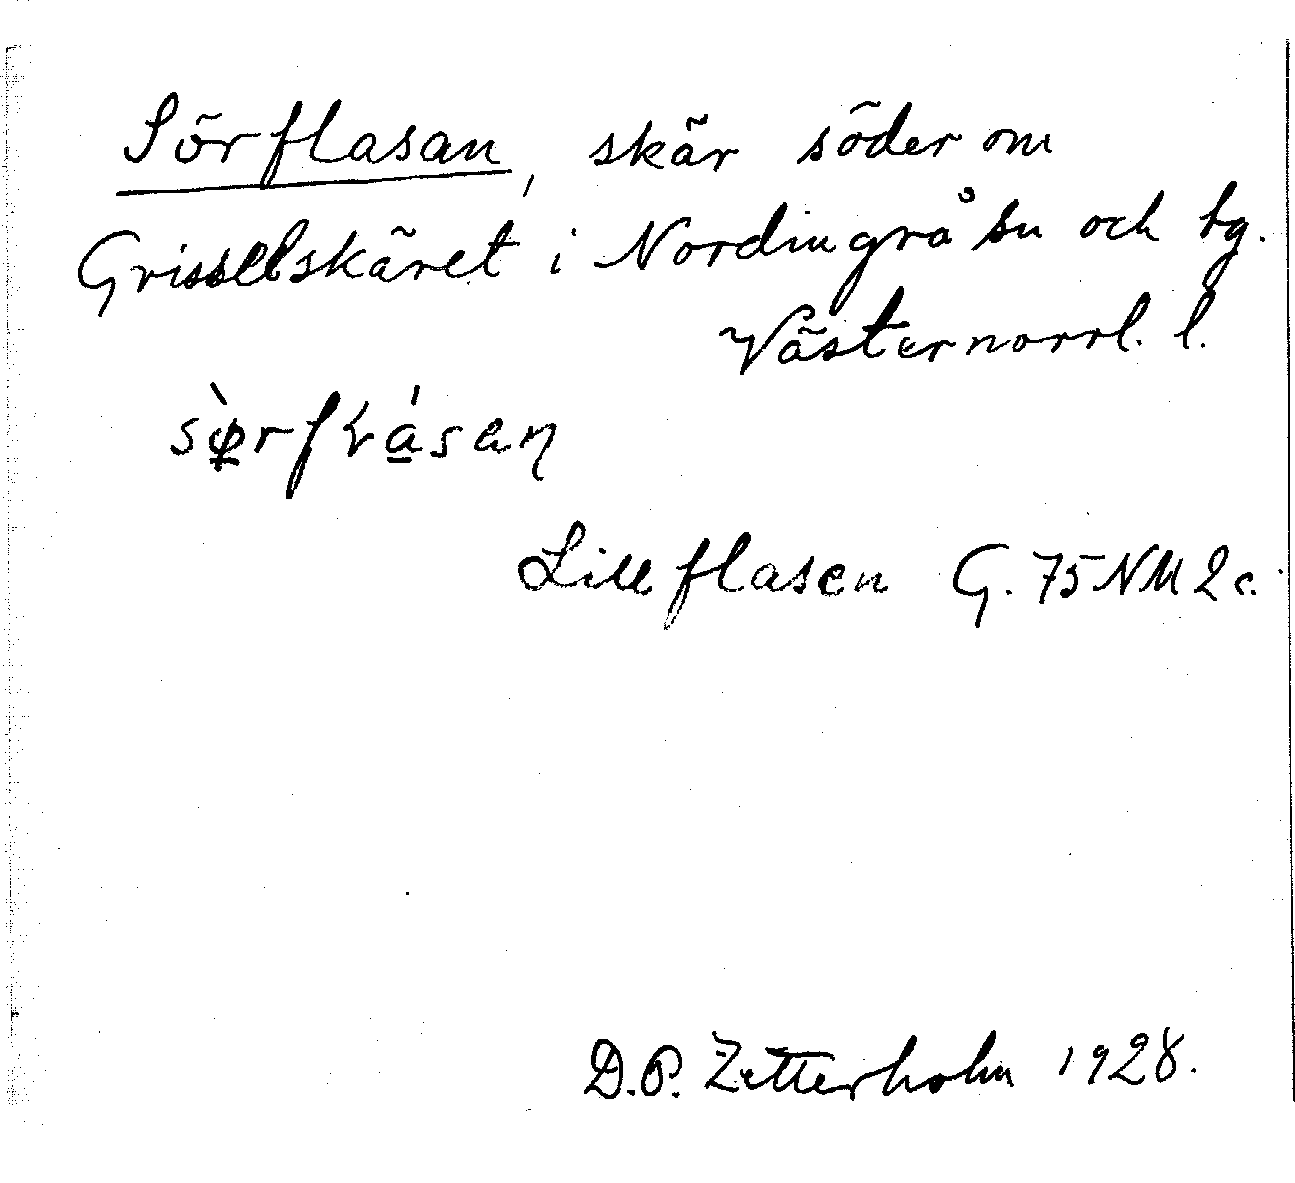 Sörflasan, skär söder om
Grisselskäret i Nordingrå sn och tg.
Västernorrl. l.
Lillflasen G. 75 NM 2 c.
D.O. Zetterholm 1928.